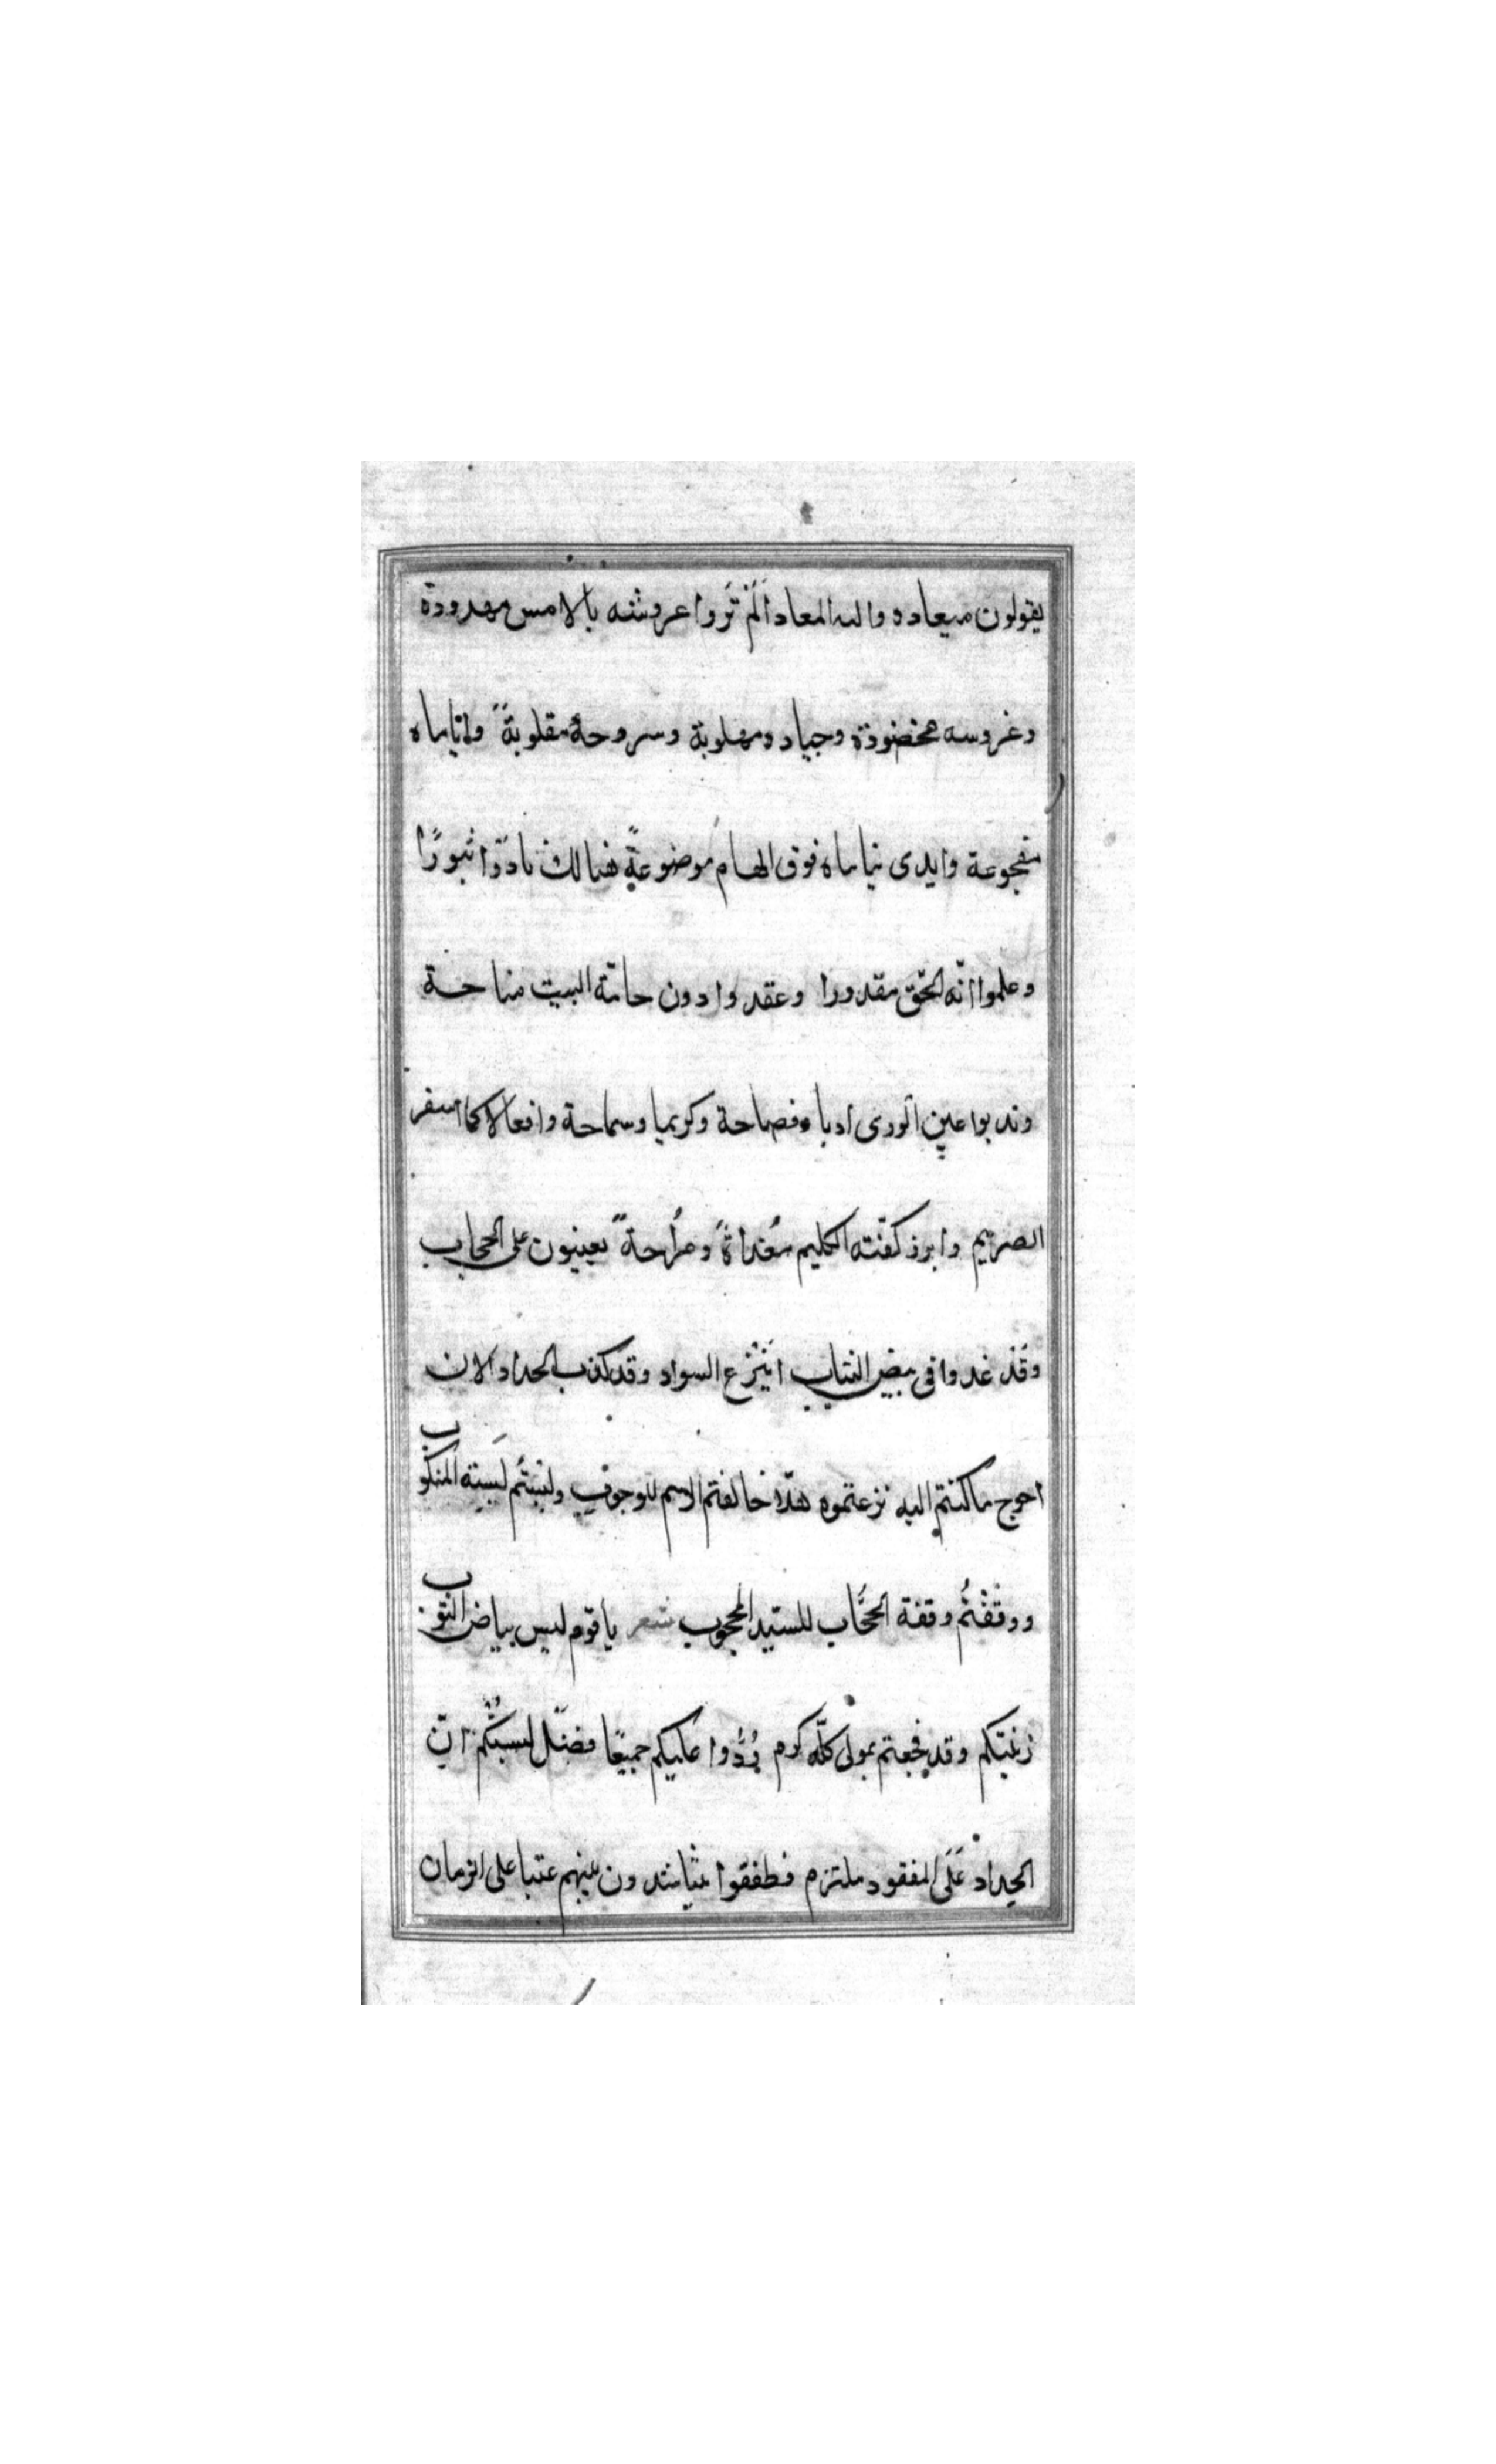 يقولون ميعاده واليه المعاد اَلَمْ تَرَوا عروشه بالامس مهدودة
وغروسه مخضودة وجياد ومهلوبة وسروحة مقلوبةً وايا ماه
مفجوعة وايدى تياماه فوق الهام موضوعةً هنالك نادَوا ثبورًا
وعلموا انّه الحقّ مقدورا وعقدوا دون حامّة البيت مناحة
وندبوا عين الورى ادبا وفصاحة وكريما وسماحة وافعالا كما اسفر
الصريم وابرز كفّته الكليم مُغداةً ومُراحةً يعينون على الحجاب
وقَد غدوا فى بيض الثياب اَيُنْزع السواد وقد كذب الحداد الان
احوج ما كنتم اليه نزعتموه هلّا خالفتم الاسم للوجوب ولبستُم لَبسة المنكوب
ووقفتُم وقفة الحُجّاب للسيّد المحجوب شعر يا قوم ليس بياض الثوب
زينتكم وقد فجعتم بمولى كلّه كرم رُدُّوا عليكم جميعًا فضل لبستُكُم انّ
الحداد عَلَى المفقود ملتزم فطفقوا يتناشدون بينهم عتبا على الزمان